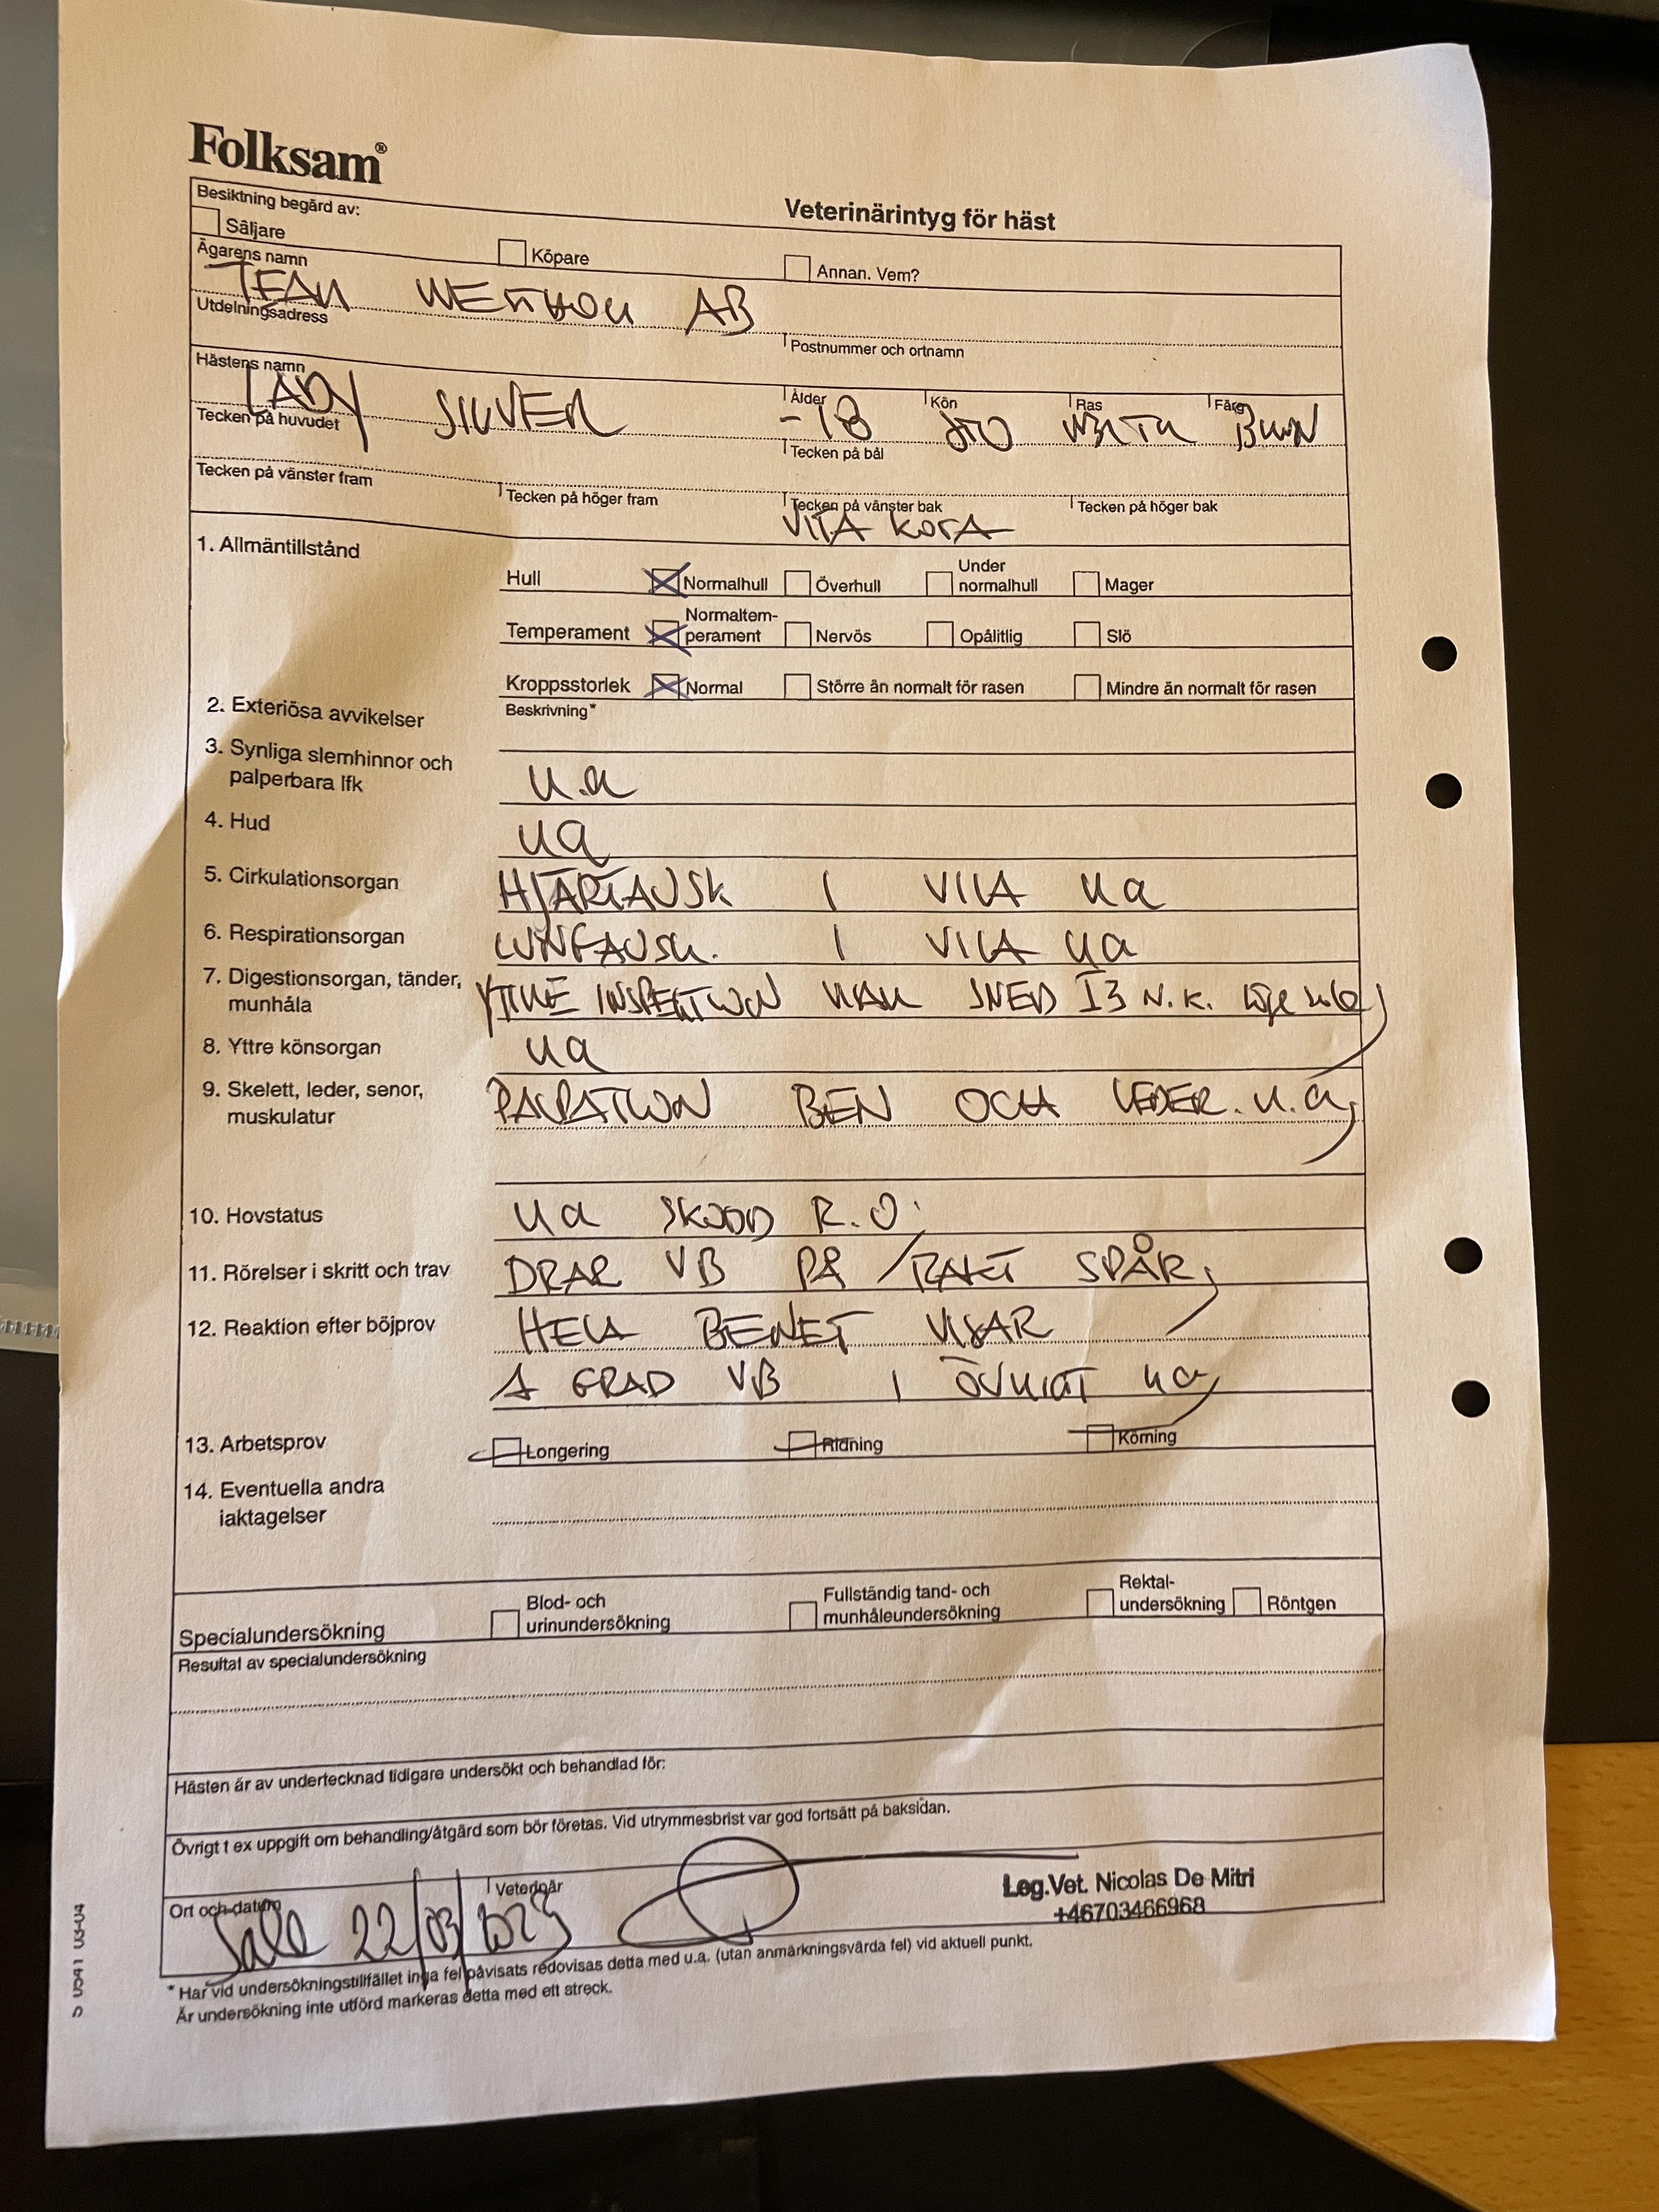 Folksam®
Veterinärintyg för häst
Besiktning begärd av:
Säljare Köpare Annan. Vem?
Ägarens namn
TEAM AB
Utdelningsadress Postnummer och ortnamn
Hästens namn Ålder Kön Ras Färg
LADY SILVER -18 STO BRUN
Tecken på huvudet Tecken på bål
Tecken på vänster fram Tecken på höger fram Tecken på vänster bak Tecken på höger bak
VITA
1. Allmäntillstånd
Hull Normalhull Överhull Under normalhull Mager
Temperament Normaltem-perament Nervös Opålitlig Slö
Kroppsstorlek Normal Större än normalt för rasen Mindre än normalt för rasen
2. Exteriösa avvikelser Beskrivning*
3. Synliga slemhinnor och
palperbara lfk u.a
4. Hud ua
5. Cirkulationsorgan HJÄRTAUSK I VILA ua
6. Respirationsorgan LUNGAUSK. I VILA ua
7. Digestionsorgan, tänder,
munhåla YTTRE INSPEKTION VISAR SNED I3 N.K.
8. Yttre könsorgan ua
9. Skelett, leder, senor,
muskulatur PALPATION BEN OCH LEDER. u.a
10. Hovstatus ua SKODD R.O.
11. Rörelser i skritt och trav DRAR VB PÅ RAKT SPÅR
12. Reaktion efter böjprov HELA BENET VISAR
1 GRAD VB I ÖVRIGT ua
13. Arbetsprov Longering Ridning Körning
14. Eventuella andra
iaktagelser
Specialundersökning Blod- och urinundersökning Fullständig tand- och munhåleundersökning Rektal-undersökning Röntgen
Resultat av specialundersökning
Hästen är av undertecknad tidigare undersökt och behandlad för:
Övrigt t ex uppgift om behandling/åtgärd som bör företas. Vid utrymmesbrist var god fortsätt på baksidan.
Ort och datum Veterinär
Sala 22/03/2023
Leg.Vet. Nicolas De Mitri
+46703466968
* Har vid undersökningstillfället inga fel påvisats redovisas detta med u.a. (utan anmärkningsvärda fel) vid aktuell punkt.
Är undersökning inte utförd markeras detta med ett streck.